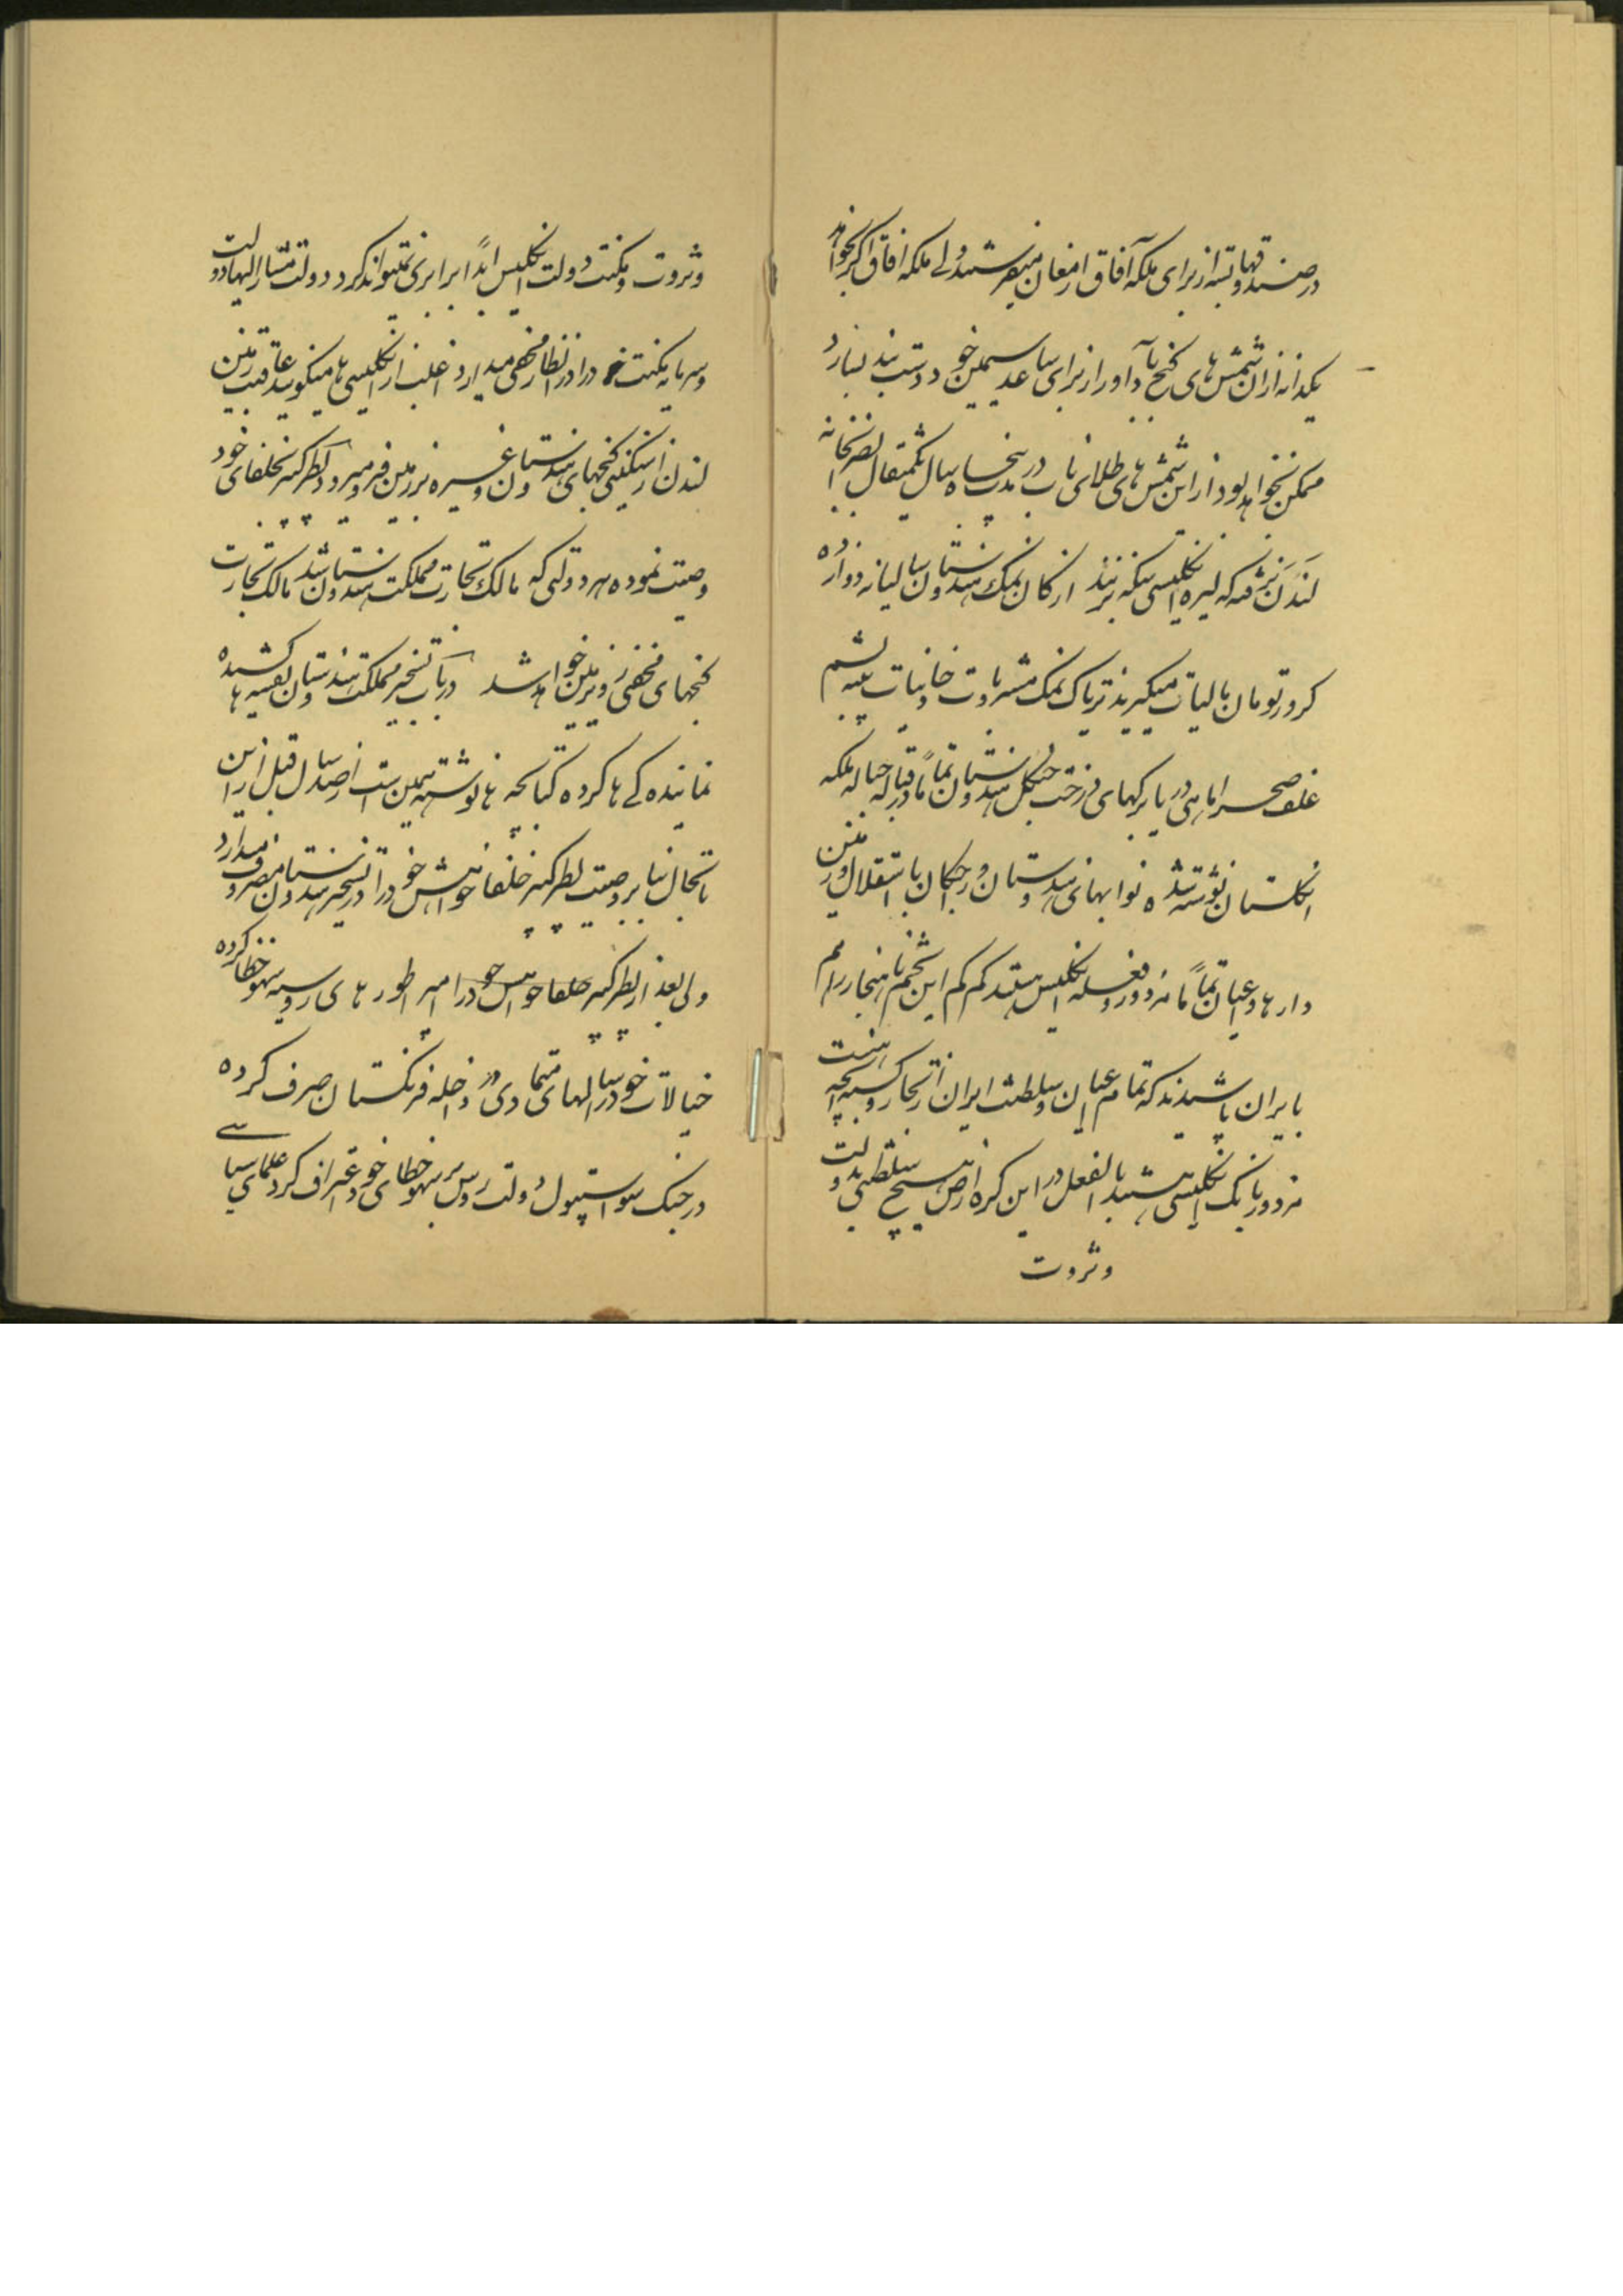 در صندوقها بسته از برای ملکه آفاق ارمغان میفرستند ولی ملکه آفاق اگر بخواهد
یکدانه از آن شمش های گنج باد آور از برای ساعد سیمین خود دست بند بسازد
ممکن نخواهد بود از این شمش های طلای ناب در مدت پنجاه سال یکمثقال بضرابخانه
لندن نرفته که لیره انگلیسی سکه بزنند از کان نمک هندوستان سالیانه دوازده
کرور تومان مالیات میگیرند تریاک نمک مشروبات دخانیات پنبه پشم
علف صحرا ماهی دریا برگهای درخت جنگل هندوستان تماماً در قباله حباله ملکه
انگلستان نوشته شده نوابهای هندوستان و راجگان با استقلال و زمین
دارها و اعیان تماماً مزدور و فعله انگلیس هستند کم کم این تخم ناهنجار را هم
بایران پاشیدند که تمام اعیان سلطنت ایران از تجار و کسبه
مزدور بانک انگلیسی هستند بالفعل در این کره ارض هیچ سلطنتی بدولت
و ثروت
و ثروت و مکنت دولت انگلیس ابداً برابری نمیتواند کرد دولت مشارالیها دولت
و سرمایه مکنت خود را در انظار مخفی میدارد اغلب از انگلیسی ها میگویند عاقبت زمین
لندن از سنگینی گنجهای هندوستان و غیره بزمین فرو میرود پطر کبیر بخلفای خود
وصیت نموده هر دولتی که مالک تجارت مملکت هندوستان شد مالک تجارت
گنجهای مخفی زیر زمین خواهد شد در باب تسخیر مملکت هندوستان نقشه ها کشیده
نماینده گی ها کرده کتابچه ها نوشته همین است از صد سال قبل از این
تا بحال بنا بر وصیت پطر کبیر خلفا حواس خود را در تسخیر هندوستان مصروف میدارد
ولی بعد از پطر کبیر خلفا حواس خود را امپراطور های روسیه سهو و خطا کرده
خیالات خود را سالهای متمادی در داخله فرنگستان صرف کرده
در جنگ سواستپول دولت روس بر سهو و خطای خود اعتراف کرد علمای سیاسی